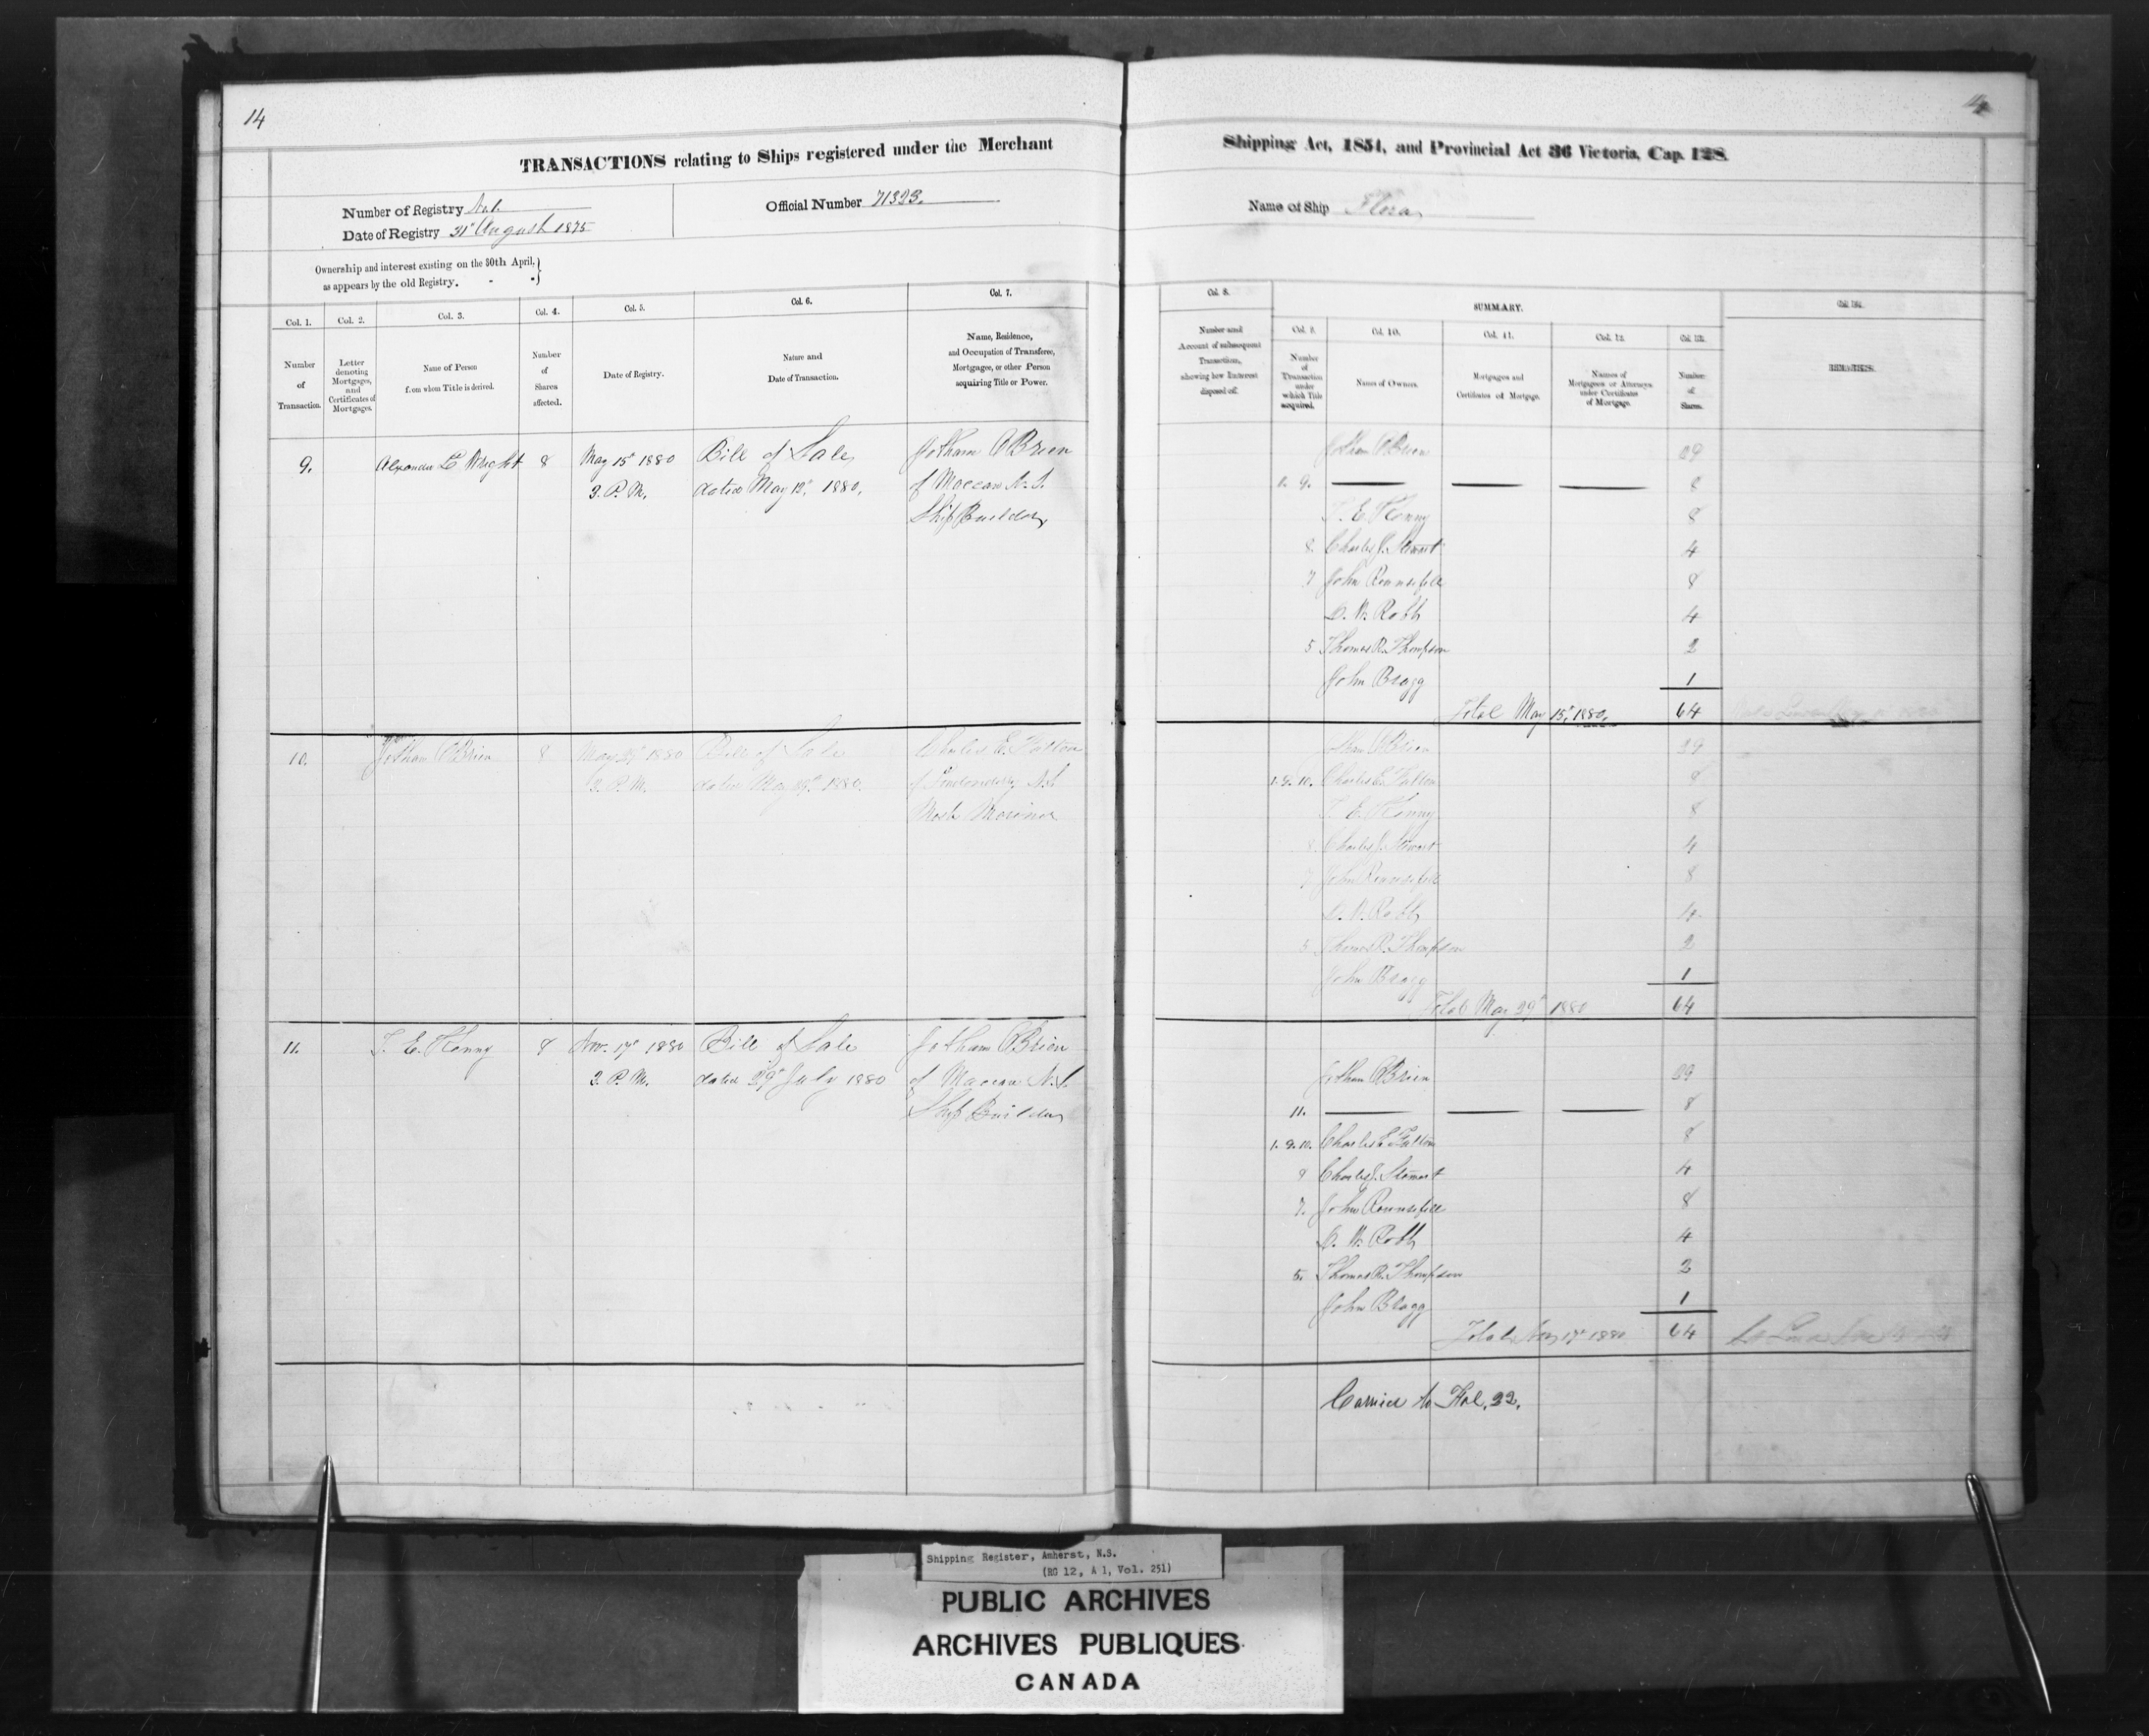 14
14
TRANSACTIONS relating to Ships registered under the Merchant
Shipping Act, 1854, and Provincial Act 36 Victoria, Cap. 128.
Number of Registry No 1.
Date of Registry 31st August 1875
Official Number 71393.
Name of Ship Flora
Ownership and interest existing on the 30th April,
as appears by the old Registry. - -
Col. 1. Col. 2. Col. 3. Col. 4. Col. 5. Col. 6. Col. 7.
Number of Transaction.
Letter denoting Mortgages, and Certificates of Mortgages.
Name of Person from whom Title is derived.
Number of Shares affected.
Date of Registry.
Nature and Date of Transaction.
Name, Residence, and Occupation of Transferee, Mortgagee, or other Person acquiring Title or Power.
9. Alexander C Wright 8 May 15th 1880 Bill of Sale Jotham O'Brien
3. P. M. dated May 12th, 1880. of Maccan N. S.
Ship Builder
10. Jotham O'Brien 8 May 29th 1880 Bill of Sale Charles E. Fulton
3. P. M. dated May 29th 1880. of Londonderry N.S.
Master Mariner
11. T. E. Kenny 8 Nov. 17th 1880 Bill of Sale Jotham O'Brien
3. P. M. dated 29th July 1880 of Maccan N.S.
Ship Builder
Col. 8. SUMMARY.
Col. 9. Col. 10. Col. 11. Col. 12. Col. 13.
Number and Account of subsequent Transactions, showing how Interest disposed of.
Number of Transaction under which Title acquired.
Names of Owners.
Mortgages and Certificates of Mortgage.
Names of Mortgagees or Attorneys under Certificates of Mortgage.
Number of Shares.
REMARKS.
Jotham O'Brien 29
1. 9. — — — 8
T. E. Kenny 8
8. Charles J. Stewart 4
7 John Rounsefell 8
D. W. Robb 4
5 Thomas R. Thompson 2
John Bragg 1
Total May 15th, 1880. 64
Jotham O'Brien 29
1. 9. 10. Charles E. Fulton 8
T. E. Kenny 8
8. Charles J. Stewart 4
7 John Rounsefell 8
D. W. Robb 4
5 Thomas R. Thompson 2
John Bragg 1
Total May 29th 1880 64
Jotham O'Brien 29
11. — — — 8
1. 9. 10. Charles E. Fulton 8
8 Charles J. Stewart 4
7. John Rounsefell 8
D. W. Robb 4
5. Thomas R. Thompson 2
John Bragg 1
Total Nov 17th 1880 64
Carried to Fol. 22.
Shipping Register, Amherst, N.S.
(RG 12, A 1, Vol. 251)
PUBLIC ARCHIVES
ARCHIVES PUBLIQUES
CANADA